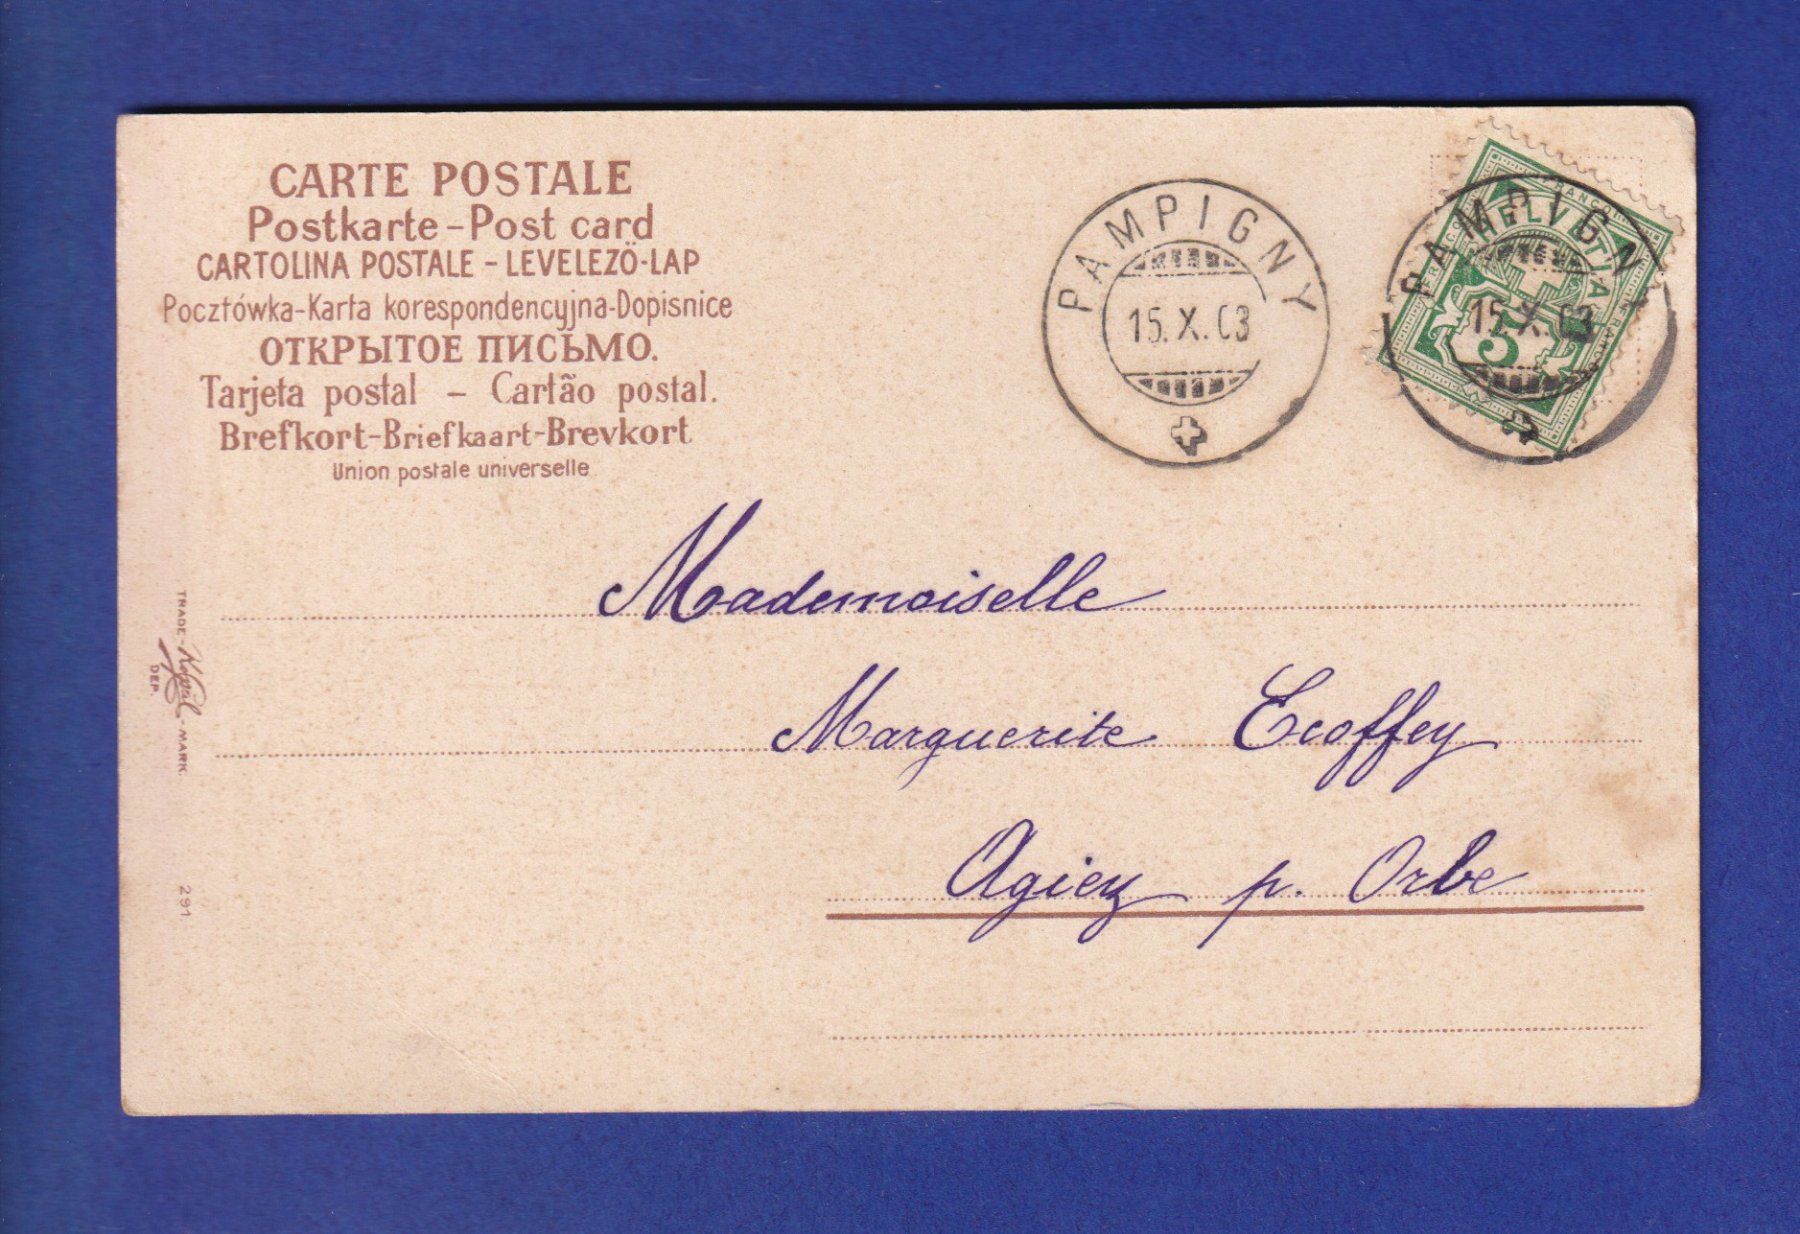 CARTE POSTALE
Postkarte-Post card
CARTOLINA POSTALE - LEVELEZÖ-LAP
Pocztówka-Karta korespondencyjna-Dopisnice
ОТКРЫТОЕ ПИСЬМО.
Tarjeta postal - Cartão postal.
Brefkort-Briefkaart-Brevkort
Union postale universelle
PAMPIGNY
15. X. 03
FRANCO HELVETIA FRANCO
5
PAMPIGNY
15. X. 03
Mademoiselle
Marguerite Ecoffey
Agiez p. Orbe
TRADE-
-MARK
DEP.
291